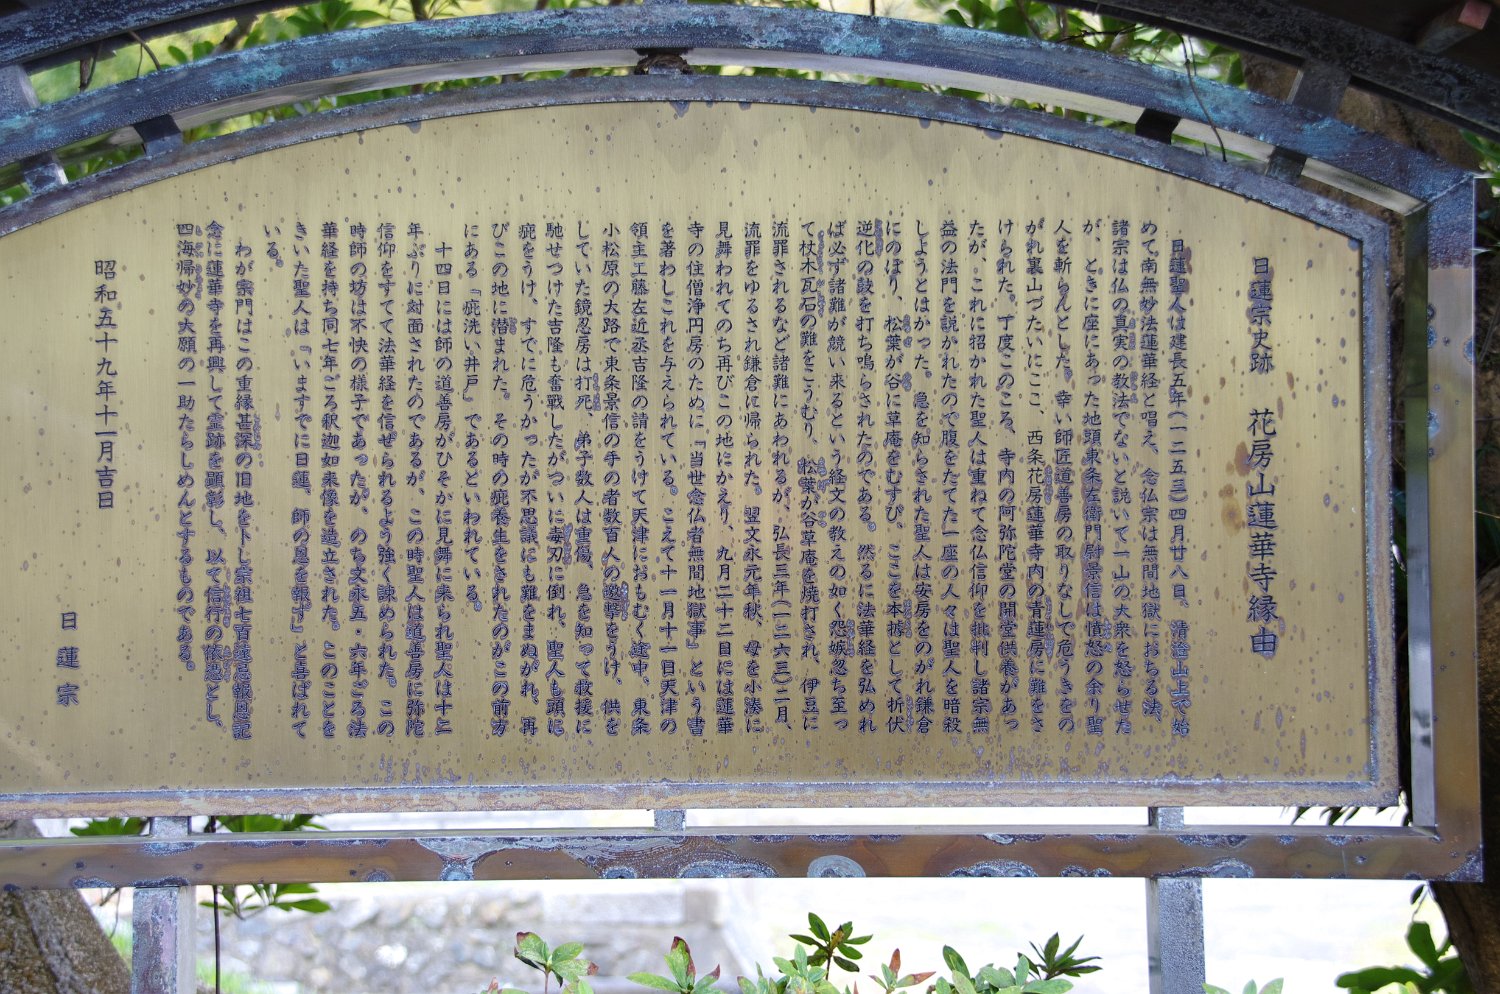 日蓮宗史跡　花房山蓮華寺縁由
日蓮聖人は建長五年(一二五三)四月廿八日、清澄山上で始
めて南無妙法蓮華経と唱え、念仏宗は無間地獄におちる法、
諸宗は仏の真実の教法でないと説いて一山の大衆を怒らせた
が、ときに座にあった地頭東条左衛門尉景信は憤怒の余り聖
人を斬らんとした。幸い師匠道善房の取りなしで危うきをの
がれ裏山づたいにここ、西条花房蓮華寺内の青蓮房に難をさ
けられた。丁度このころ、寺内の阿弥陀堂の開堂供養があっ
たが、これに招かれた聖人は重ねて念仏信仰を批判し諸宗無
益の法門を説かれたので腹をたてた一座の人々は聖人を暗殺
しようとはかった。急を知らされた聖人は安房をのがれ鎌倉
にのぼり、松葉が谷に草庵をむすび、ここを本拠として折伏
逆化の鼓を打ち鳴らされたのである。然るに法華経を弘めれ
ば必ず諸難が競い来るという経文の教えの如く怨嫉忽ち至っ
て杖木瓦石の難をこうむり、松葉が谷草庵を焼打され、伊豆に
流罪されるなど諸難にあわれるが、弘長三年(一二六三)二月、
流罪をゆるされ鎌倉に帰られた。翌文永元年秋、母を小湊に
見舞われてのち再びこの地にかえり、九月二十二日には蓮華
寺の住僧浄円房のために「当世念仏者無間地獄事」という書
を著わしこれを与えられている。こえて十一月十一日天津の
領主工藤左近丞吉隆の請をうけて天津におもむく途中、東条
小松原の大路で東条景信の手の者数百人の邀撃をうけ、供を
していた鏡忍房は打死、弟子数人は重傷、急を知って救援に
馳せつけた吉隆も奮戦したがついに毒刃に倒れ、聖人も頭に
疵をうけ、すでに危うかったが不思議にも難をまぬがれ、再
びこの地に潜まれた。その時の疵養生をされたのがこの前方
にある「疵洗い井戸」であるといわれている。
十四日には師の道善房がひそかに見舞に来られ聖人は十二
年ぶりに対面されたのであるが、この時聖人は道善房に弥陀
信仰をすてて法華経を信ぜられるよう強く諫められた。この
時師の坊は不快の様子であったが、のち文永五・六年ごろ法
華経を持ち同七年ごろ釈迦如来像を造立された。このことを
きいた聖人は「いますでに日蓮、師の恩を報ず」と喜ばれて
いる。
わが宗門はこの重縁甚深の旧地を卜し宗祖七百遠忌報恩記
念に蓮華寺を再興して霊跡を顕彰し、以て信行の依憑とし、
四海帰妙の大願の一助たらしめんとするものである。
昭和五十九年十一月吉日
日蓮宗